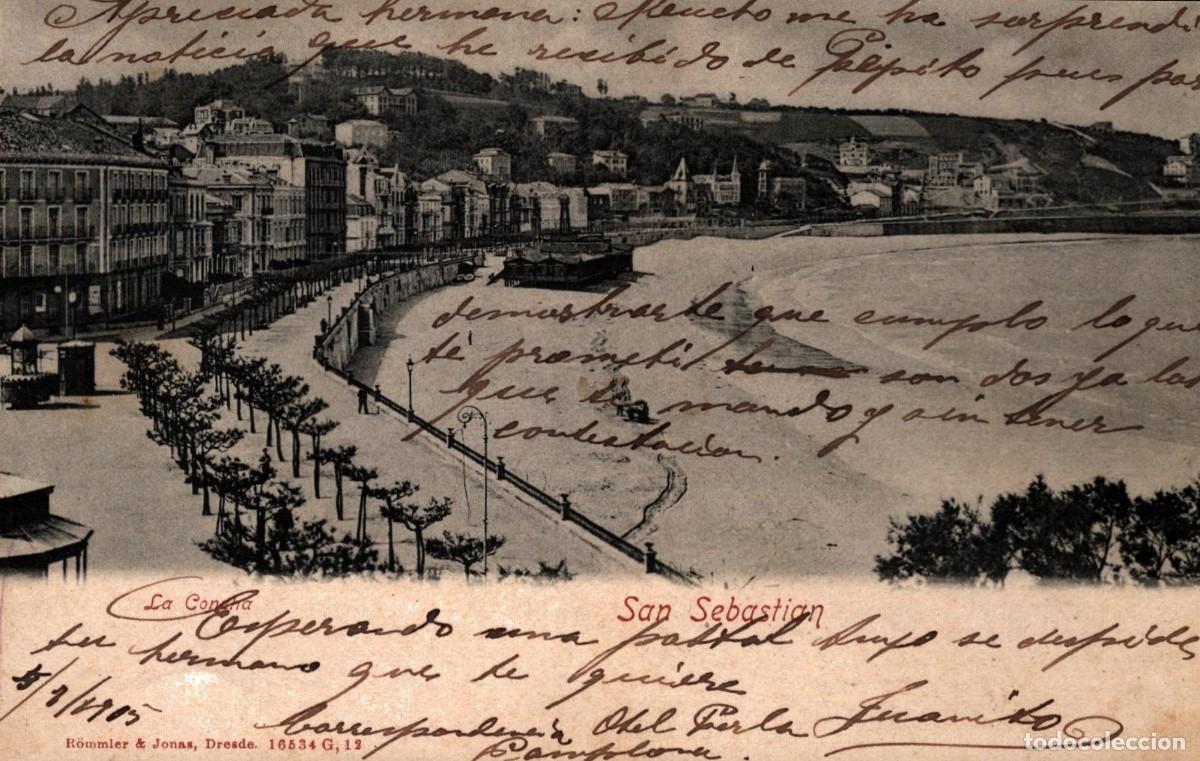 Apreciada hermana: Mucho me ha sorprendi
la noticia que he recibido de Pilpito pues pa
demostrarte que cumplo lo que
te prometi son dos ya las
que te mando y sin tener
contestacion.
La Concha
San Sebastian
Esperando una postal tuya se despide
tu hermano que te quiere
5/8/1905
Juanito
Correspondencia Otel Perla
Pamplona.
Römmler & Jonas, Dresde. 16534 G, 12
todocoleccion